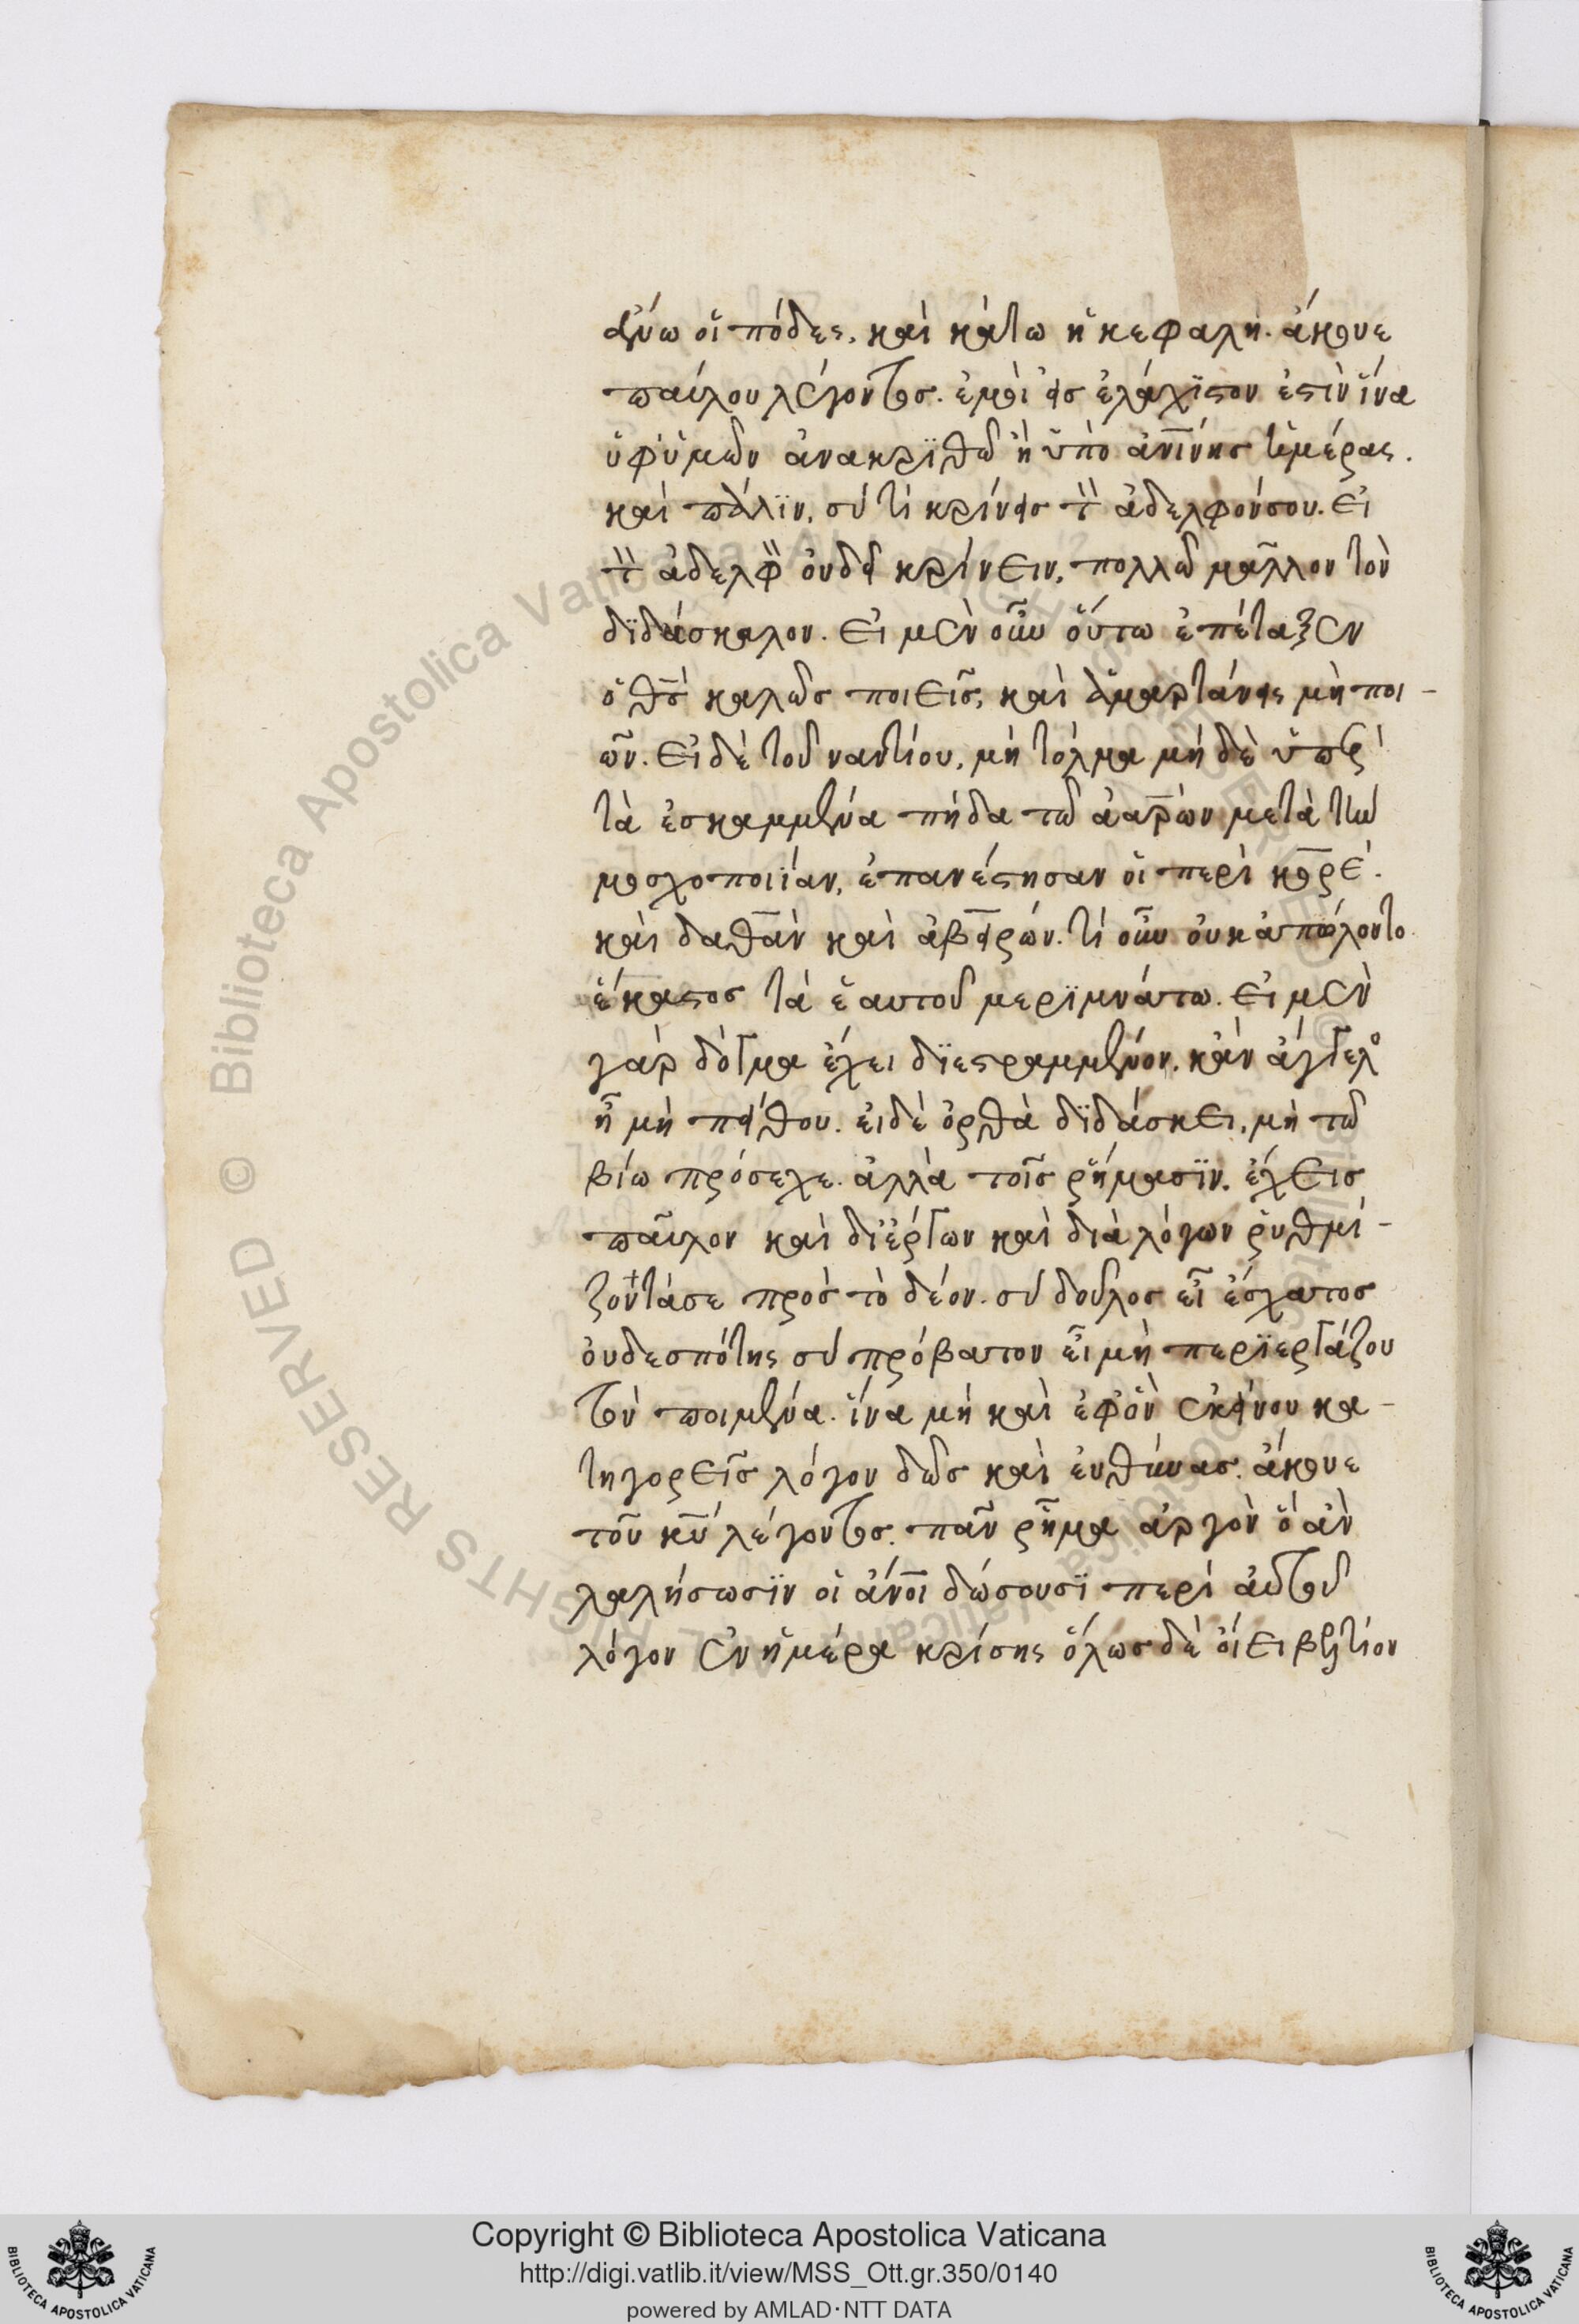 ἄνω οἱ πόδες, καὶ κάτω ἡ κεφαλή. ἄκουε
παύλου λέγοντος. ἐμοὶ εἰς ἐλάχϊστον ἐστὶν ἵνα
ὑφ' ὑμῶν ἀνακρϊθῶ ἢ ὑπὸ ἀνίνης ἡμέρας.
καὶ πάλϊν, σύ τί κρίνεις τ̀ὸν ἀδελφόν σου. εἰ
τὸν ἀδελφὸν οὐ δεῖ κρίνειν, πολλῶ μᾶλλον τὸν
δϊδάσκαλον. εἰ μὲν οὖν οὕτω ἐπέταξεν
ὁ θς καλῶς ποιεῖς, καὶ ἁμαρτάνεις μὴ ποι-
ῶν. εἰ δὲ τοὐναντίον, μὴ τόλμα μὴ δὲ ὑπὲρ
τὰ ἐσκαμμένα πήδα τῶ ἀαρὼν μετὰ τὴν
μοσχοποιΐαν, ἐπανέστησαν οἱ περὶ κορέ.
καὶ δαθὰν καὶ ἀβειρών. τί οὖν οὐκ ἀπώλοντο
ἕκαστος τὰ ἑαυτοῦ μερϊμνάτω. εἰ μὲν
γὰρ δόγμα ἔχει δϊεστραμμένον, κἂν ἄγγελος
ἦ μὴ πείθου. εἰ δὲ ὀρθὰ δϊδάσκει, μὴ τῶ
βίω πρόσεχε. ἀλλὰ τοῖς ῥήμασϊν. ἔχεις
παῦλον καὶ δι' ἔργων καὶ διὰ λόγων ῥυθμί-
ζοντά σε πρὸς τὸ δέον. σὺ δοῦλος εἶ ἔσχατος
οὐ δεσπότης σὺ πρόβατον εἶ μὴ περϊεργάζου
τὸν ποιμένα. ἵνα μὴ καὶ ἐφ' ὃν ἐκείνου κα-
τηγορεῖς λόγον δῶς καὶ εὐθύνας. ἄκουε
τοῦ κυ λέγοντος. πᾶν ῥῆμα ἀργὸν ὃ ἂν
λαλήσωσϊν οἱ ἄνοι δώσουσϊ περὶ αὐτοῦ
λόγον ἐν ἡμέρα κρίσης ὅλως δὲ οἴει βέλτίον
Copyright © Biblioteca Apostolica Vaticana
http://digi.vatlib.it/view/MSS_Ott.gr.350/0140
powered by AMLAD·NTT DATA